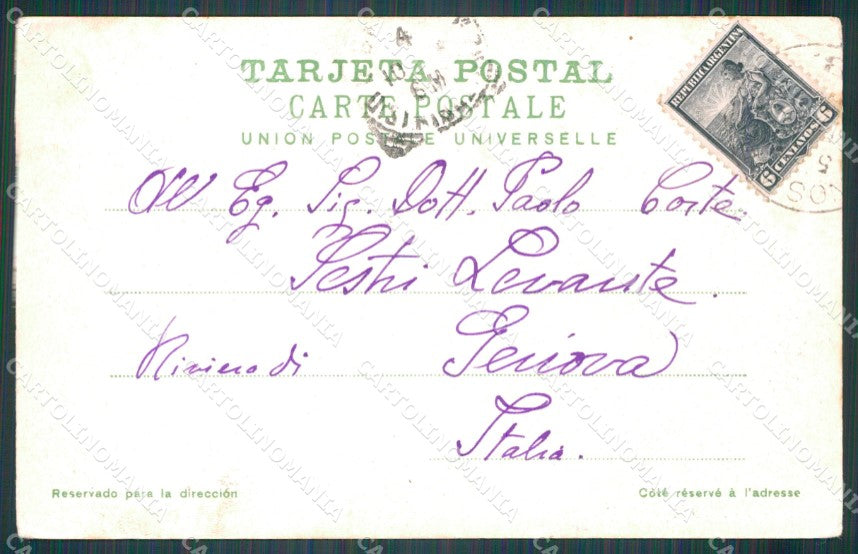 TARJETA POSTAL
CARTE POSTALE
UNION POSTALE UNIVERSELLE
REPUBLICA ARGENTINA
5 CENTAVOS 5
All' Eg. Sig. Dott. Paolo Corte
Sestri Levante.
Riviera di Genova
Italia.
Reservado para la dirección
Côté réservé à l'adresse
CARTOLINOMANIA